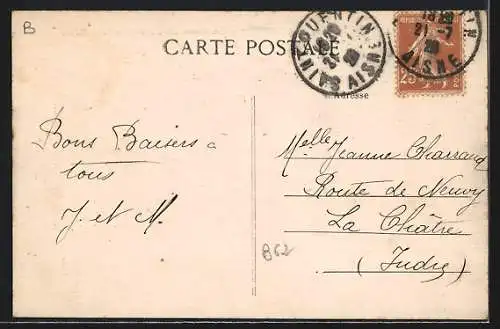 B
CARTE POSTALE
SAINT-QUENTIN
AISNE
21-7
AISNE
25
Adresse
Bons Baisers à
tous
J. et M.
Melle Jeanne Charraud
Route de Neuvy
La Châtre
(Indre)
B62